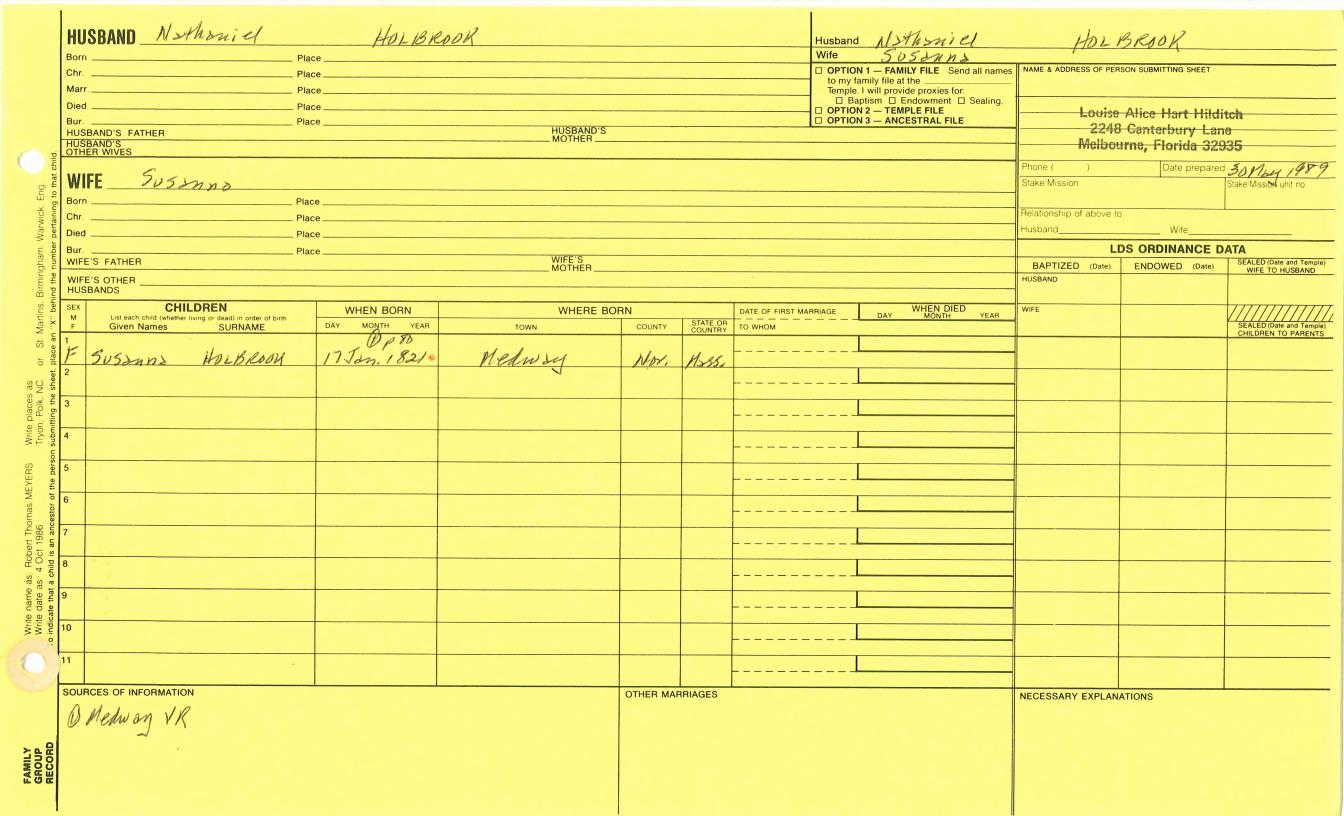 HUSBAND Nathaniel HOLBROOK
Born Place
Chr. Place
Marr. Place
Died Place
Bur. Place
HUSBAND'S FATHER HUSBAND'S MOTHER
HUSBAND'S OTHER WIVES
Husband Nathaniel HOLBROOK
Wife Susanna
OPTION 1 — FAMILY FILE Send all names
to my family file at the
Temple. I will provide proxies for:
Baptism Endowment Sealing.
OPTION 2 — TEMPLE FILE
OPTION 3 — ANCESTRAL FILE
NAME & ADDRESS OF PERSON SUBMITTING SHEET
Louise Alice Hart Hilditch
2248 Canterbury Lane
Melbourne, Florida 32935
Phone ( ) Date prepared 30 May 1989
Stake Mission Stake Mission unit no
Relationship of above to
Husband Wife
WIFE Susanna
Born Place
Chr. Place
Died Place
Bur. Place
WIFE'S FATHER WIFE'S MOTHER
WIFE'S OTHER HUSBANDS
LDS ORDINANCE DATA
BAPTIZED (Date) ENDOWED (Date) SEALED (Date and Temple) WIFE TO HUSBAND
HUSBAND
WIFE
SEALED (Date and Temple) CHILDREN TO PARENTS
SEX M F
CHILDREN
List each child (whether living or dead) in order of birth
Given Names SURNAME
WHEN BORN
DAY MONTH YEAR
WHERE BORN
TOWN COUNTY STATE OR COUNTRY
DATE OF FIRST MARRIAGE
TO WHOM
WHEN DIED
DAY MONTH YEAR
① p 80
1 F Susanna HOLBROOK 17 Jan. 1821 Medway Nor. Mass.
2
3
4
5
6
7
8
9
10
11
SOURCES OF INFORMATION
① Medway VR
OTHER MARRIAGES
NECESSARY EXPLANATIONS
FAMILY GROUP RECORD
Write name as: Robert Thomas MEYERS Write places as: Tryon, Polk, NC or St. Martins, Birmingham, Warwick, Eng.
Write date as: 4 Oct 1986
To indicate that a child is an ancestor of the person submitting the sheet, place an "X" behind the number pertaining to that child.